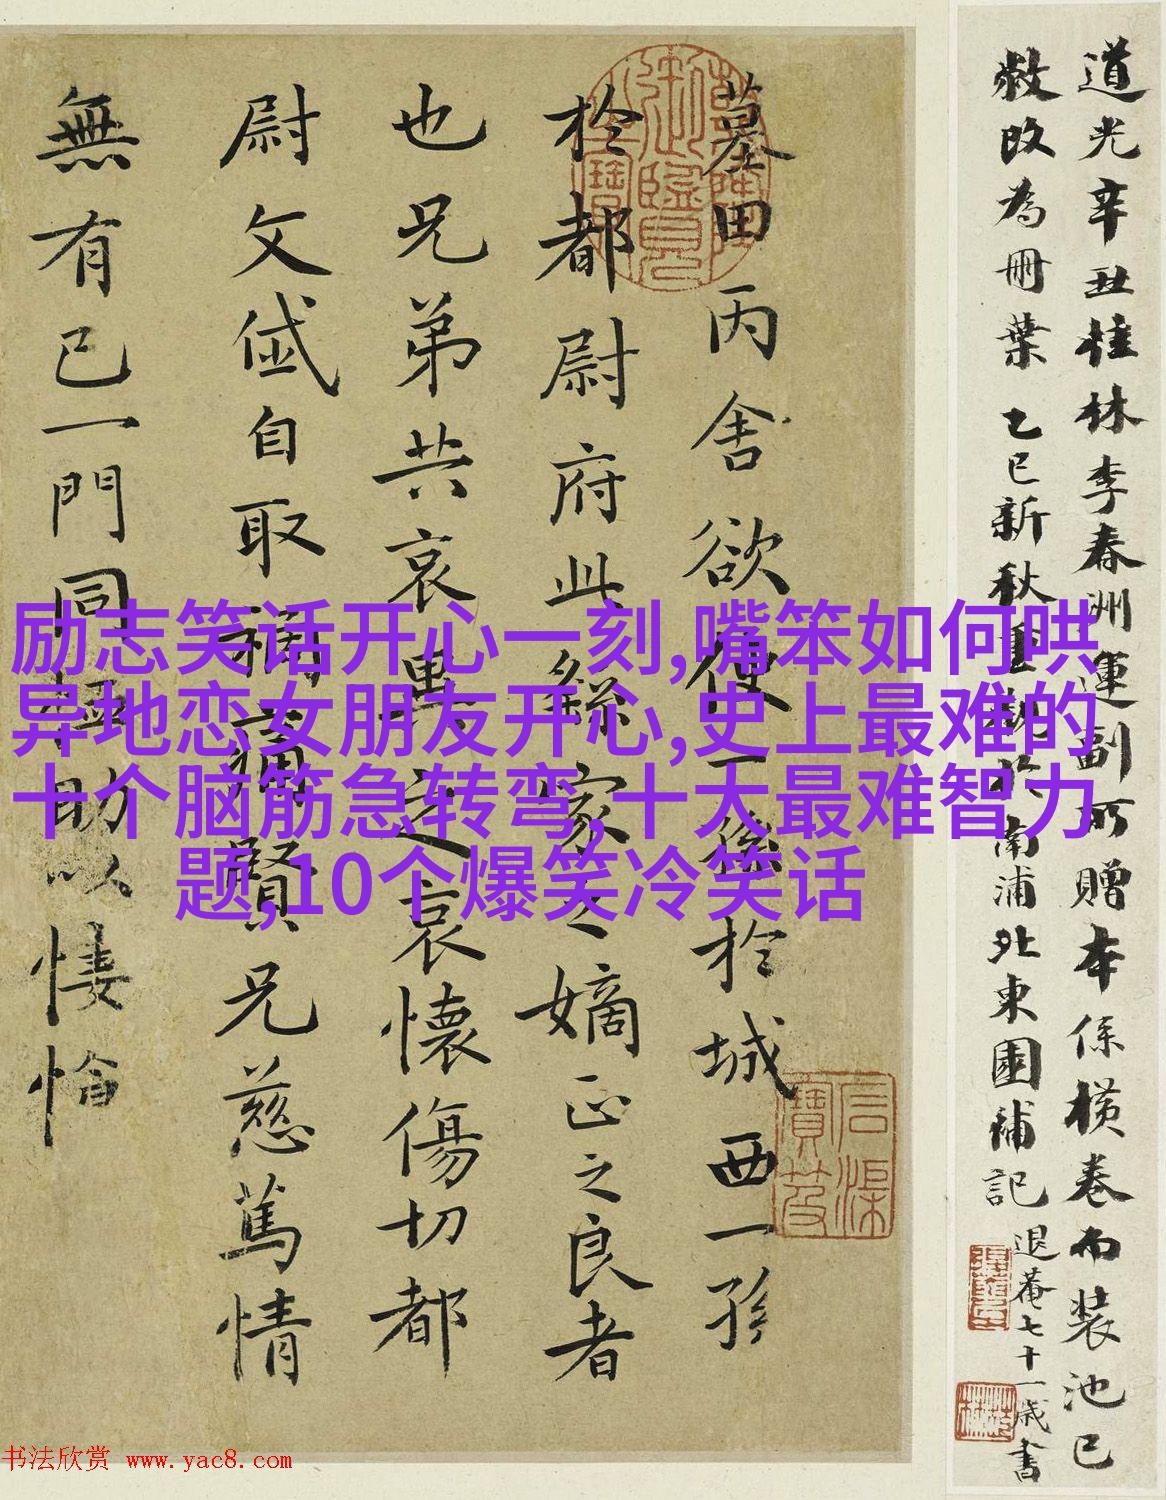 道光辛丑桂林李春洲運副所贈本係橫卷而裝池已
敝改為冊葉 乙巳新秋重觀於南浦北東園補記 退菴七十一歲書
墓田丙舍欲使一孫於城西一孫
於都尉府此繇家之嫡正之良者
也兄弟共哀異之哀懷傷切都
尉文岱自取禍痛賢兄慈篤情
無有已一門同恤助以悽愴
励志笑话开心一刻,嘴笨如何哄
异地恋女朋友开心,史上最难的
十个脑筋急转弯,十大最难智力
题,10个爆笑冷笑话
书法欣赏 www.yac8.com